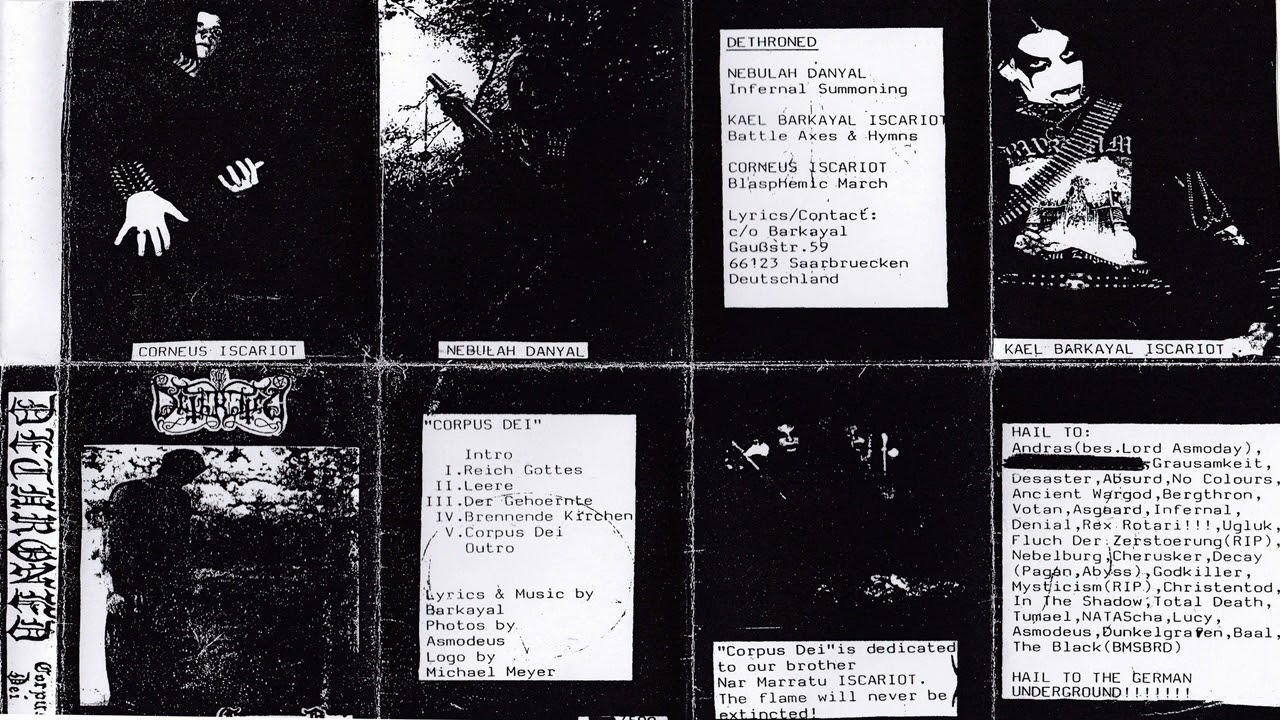 DETHRONED
NEBULAH DANYAL
Infernal Summoning
KAEL BARKAYAL ISCARIOT
Battle Axes & Hymns
CORNEUS ISCARIOT
Blasphemic March
Lyrics/Contact:
c/o Barkayal
Gaußstr.59
66123 Saarbruecken
Deutschland
CORNEUS ISCARIOT
NEBULAH DANYAL
KAEL BARKAYAL ISCARIOT
DETHRONED
Corpus
Dei
DETHRONED
"CORPUS DEI"
Intro
I.Reich Gottes
II.Leere
III.Der Gehoernte
IV.Brennende Kirchen
V.Corpus Dei
Outro
Lyrics & Music by
Barkayal
Photos by
Asmodeus
Logo by
Michael Meyer
"Corpus Dei"is dedicated
to our brother
Nar Marratu ISCARIOT.
The flame will never be
extincted!
HAIL TO:
Andras(bes.Lord Asmoday),
Grausamkeit,
Desaster,Absurd,No Colours,
Ancient Wargod,Bergthron,
Votan,Asgaard,Infernal,
Denial,Rex Rotari!!!,Ugluk,
Fluch Der Zerstoerung(RIP),
Nebelburg,Cherusker,Decay
(Pagan,Abyss),Godkiller,
Mysticism(RIP),Christentod,
In The Shadow,Total Death,
Tumael,NATAScha,Lucy,
Asmodeus,Dunkelgrafen,Baal,
The Black(BMSBRD)
HAIL TO THE GERMAN
UNDERGROUND!!!!!!!